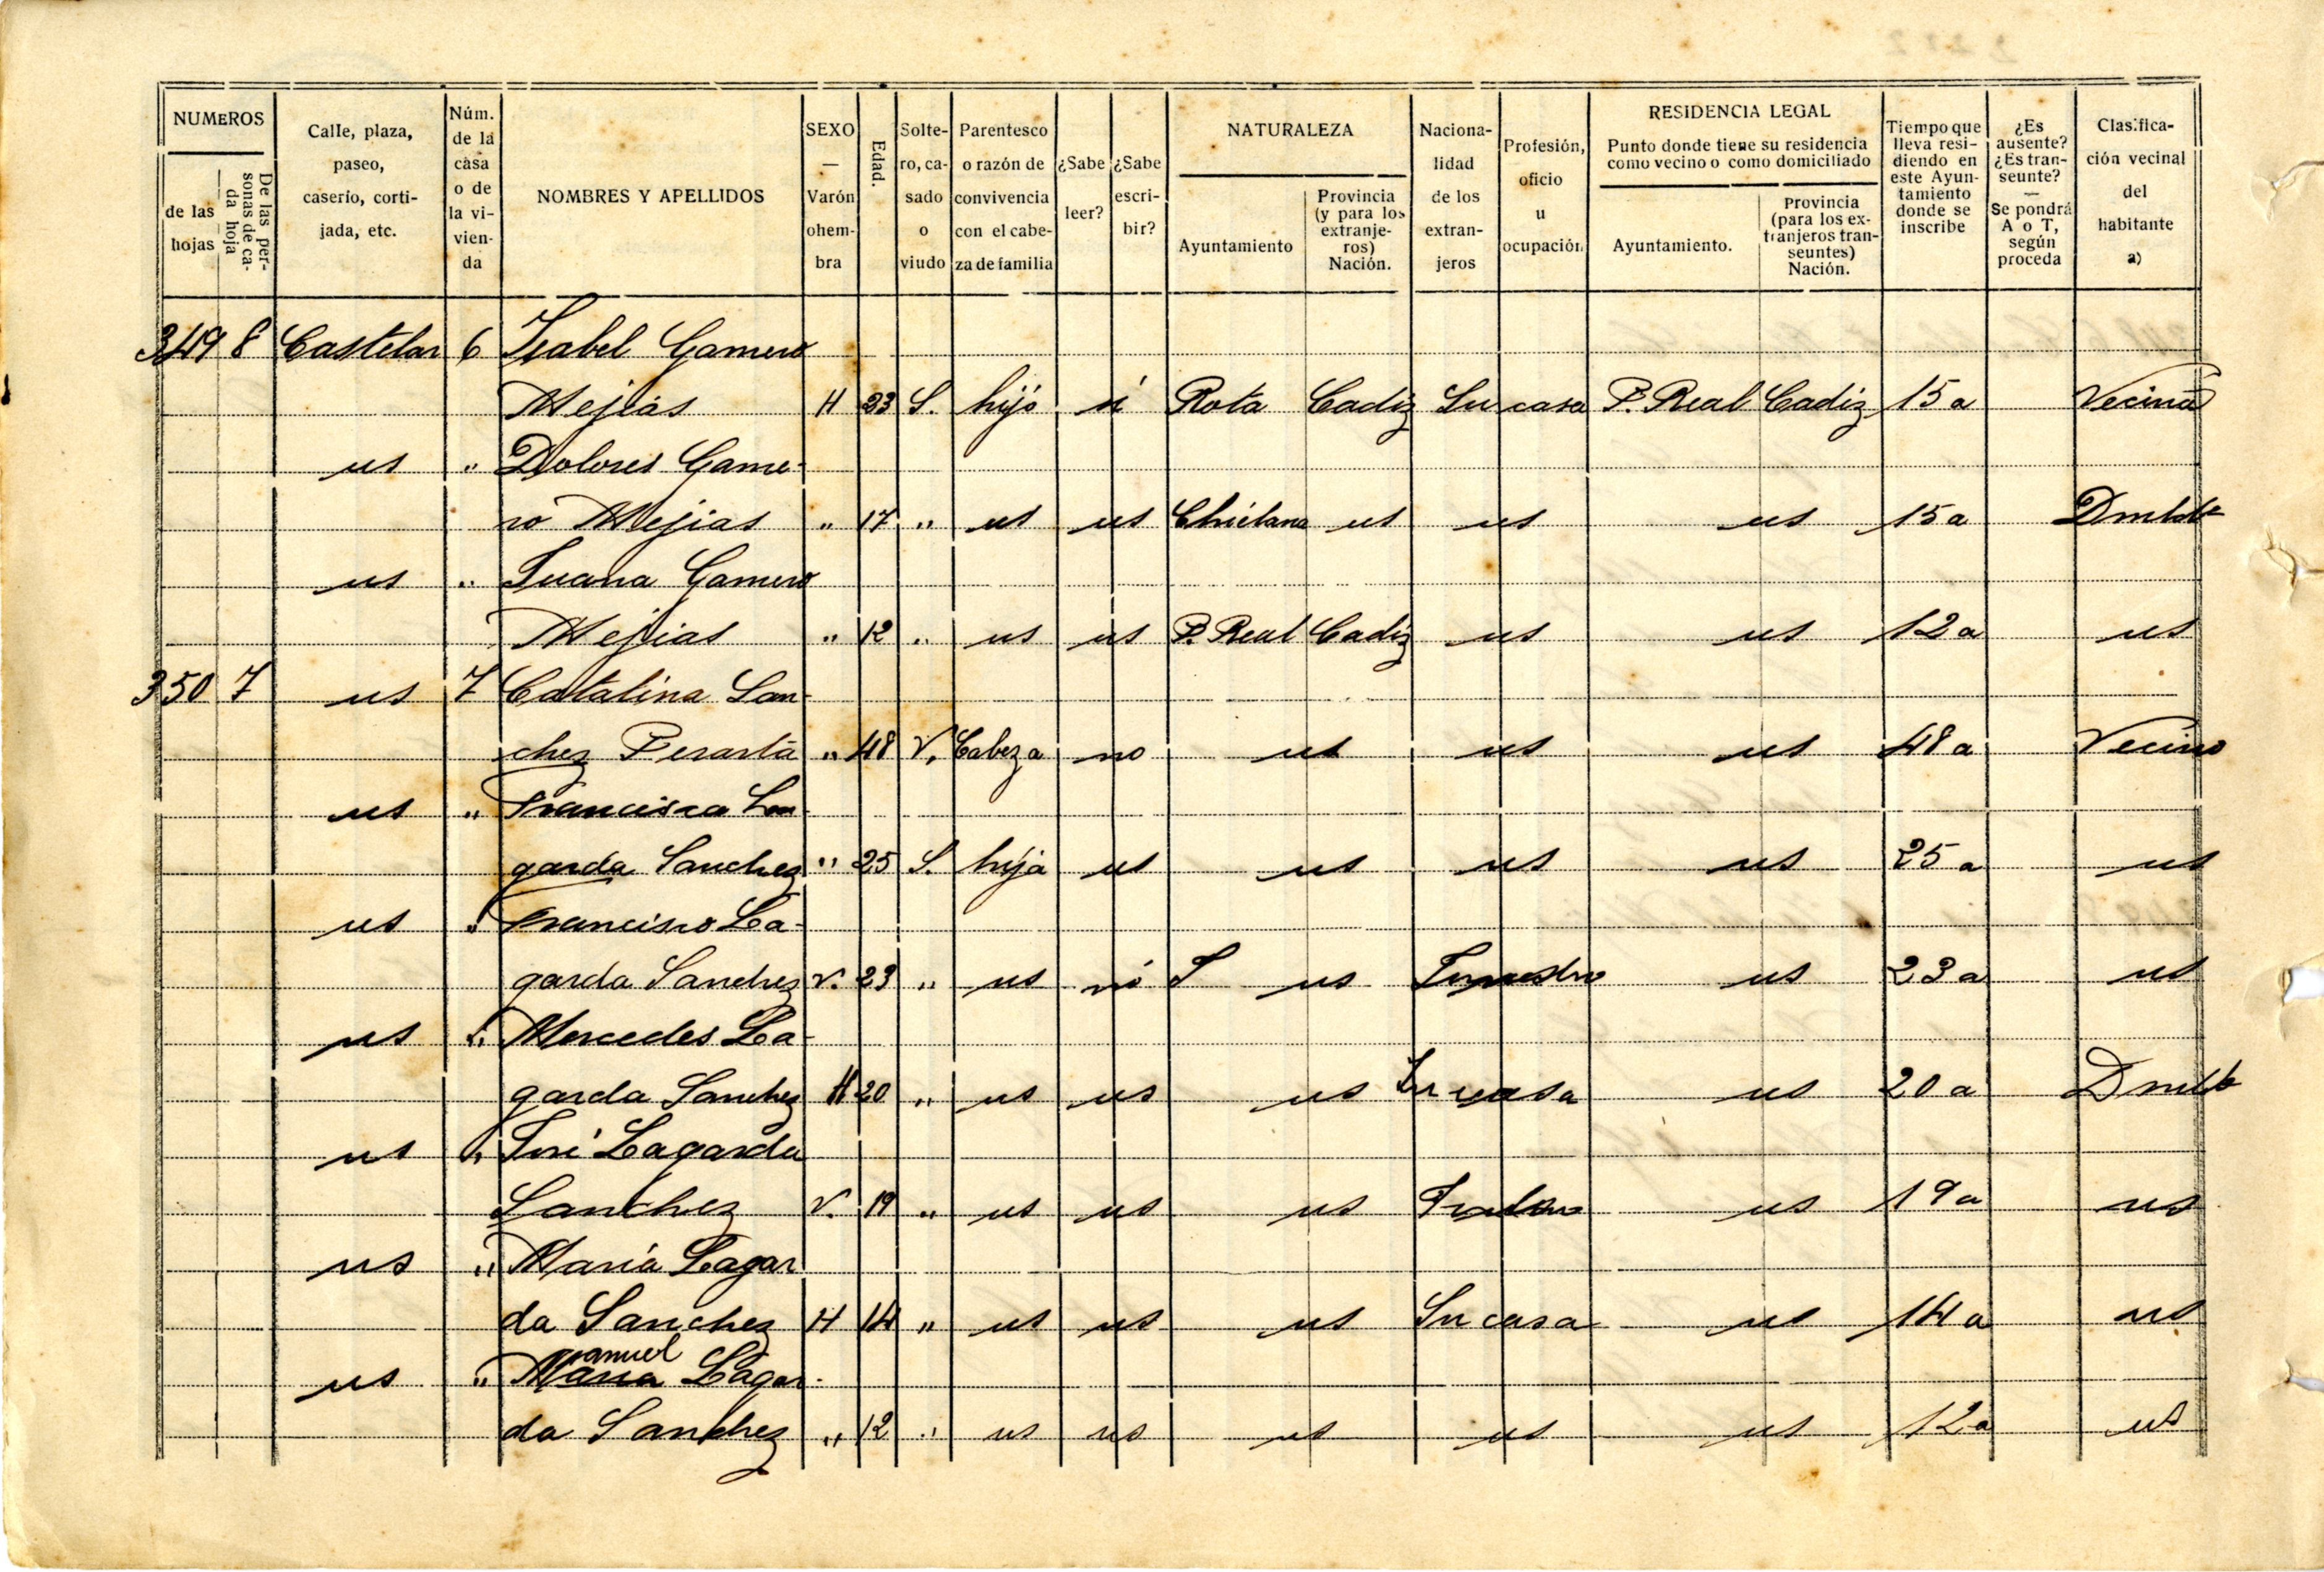 NUMEROS
de las hojas
De las personas de cada hoja
Calle, plaza, paseo, caserío, cortijada, etc.
Núm. de la casa o de la vivienda
NOMBRES Y APELLIDOS
SEXO — Varón ohembra
Edad.
Soltero, casado o viudo
Parentesco o razón de convivencia con el cabeza de familia
¿Sabe leer?
¿Sabe escribir?
NATURALEZA
Ayuntamiento
Provincia (y para los extranjeros) Nación.
Nacionalidad de los extranjeros
Profesión, oficio u ocupación
RESIDENCIA LEGAL
Punto donde tiene su residencia como vecino o como domiciliado
Ayuntamiento.
Provincia (para los extranjeros transeuntes) Nación.
Tiempo que lleva residiendo en este Ayuntamiento donde se inscribe
¿Es ausente? ¿Es transeunte? — Se pondrá A o T, según proceda
Clasificación vecinal del habitante a)
349 8 Castelar 6 Isabel Gamero
Mejias H 23 S. hija si Rota Cadiz Su casa P. Real Cadiz 15 a Vecina
us " Dolores Game-
ro Mejias " 17 " us us Chiclana us us us 15 a
us " Juana Gamero
Mejias " 12 " us us P. Real Cadiz us us 12 a us
350 7 us 7 Catalina San-
chez " 48 V. Cabeza no us us us 48 a Vecino
us " Francisca La-
garda Sanchez " 25 S. hija us us us us 25 a us
us " Francisco La-
garda Sanchez V. 23 " us us us 23 a us
us " Mercedes La-
garda Sanchez H 20 " us us us Su casa us 20 a
us " José Lagarda
Sanchez V. 19 " us us us us 19 a us
us " Maria Lagar
da Sanchez H 14 " us us us Su casa us 14 a us
us " Manuel Lagar-
da Sanchez " 12 " us us us us us 12 a us